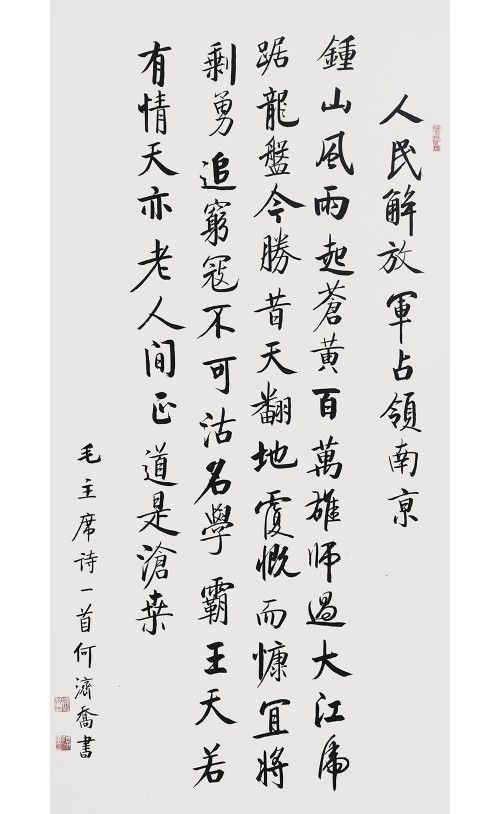 人民解放軍占領南京
鍾山風雨起蒼黃百萬雄師過大江虎
踞龍盤今勝昔天翻地覆慨而慷宜將
剩勇追窮寇不可沽名學霸王天若
有情天亦老人间正道是滄桑
毛主席诗一首何濟喬書